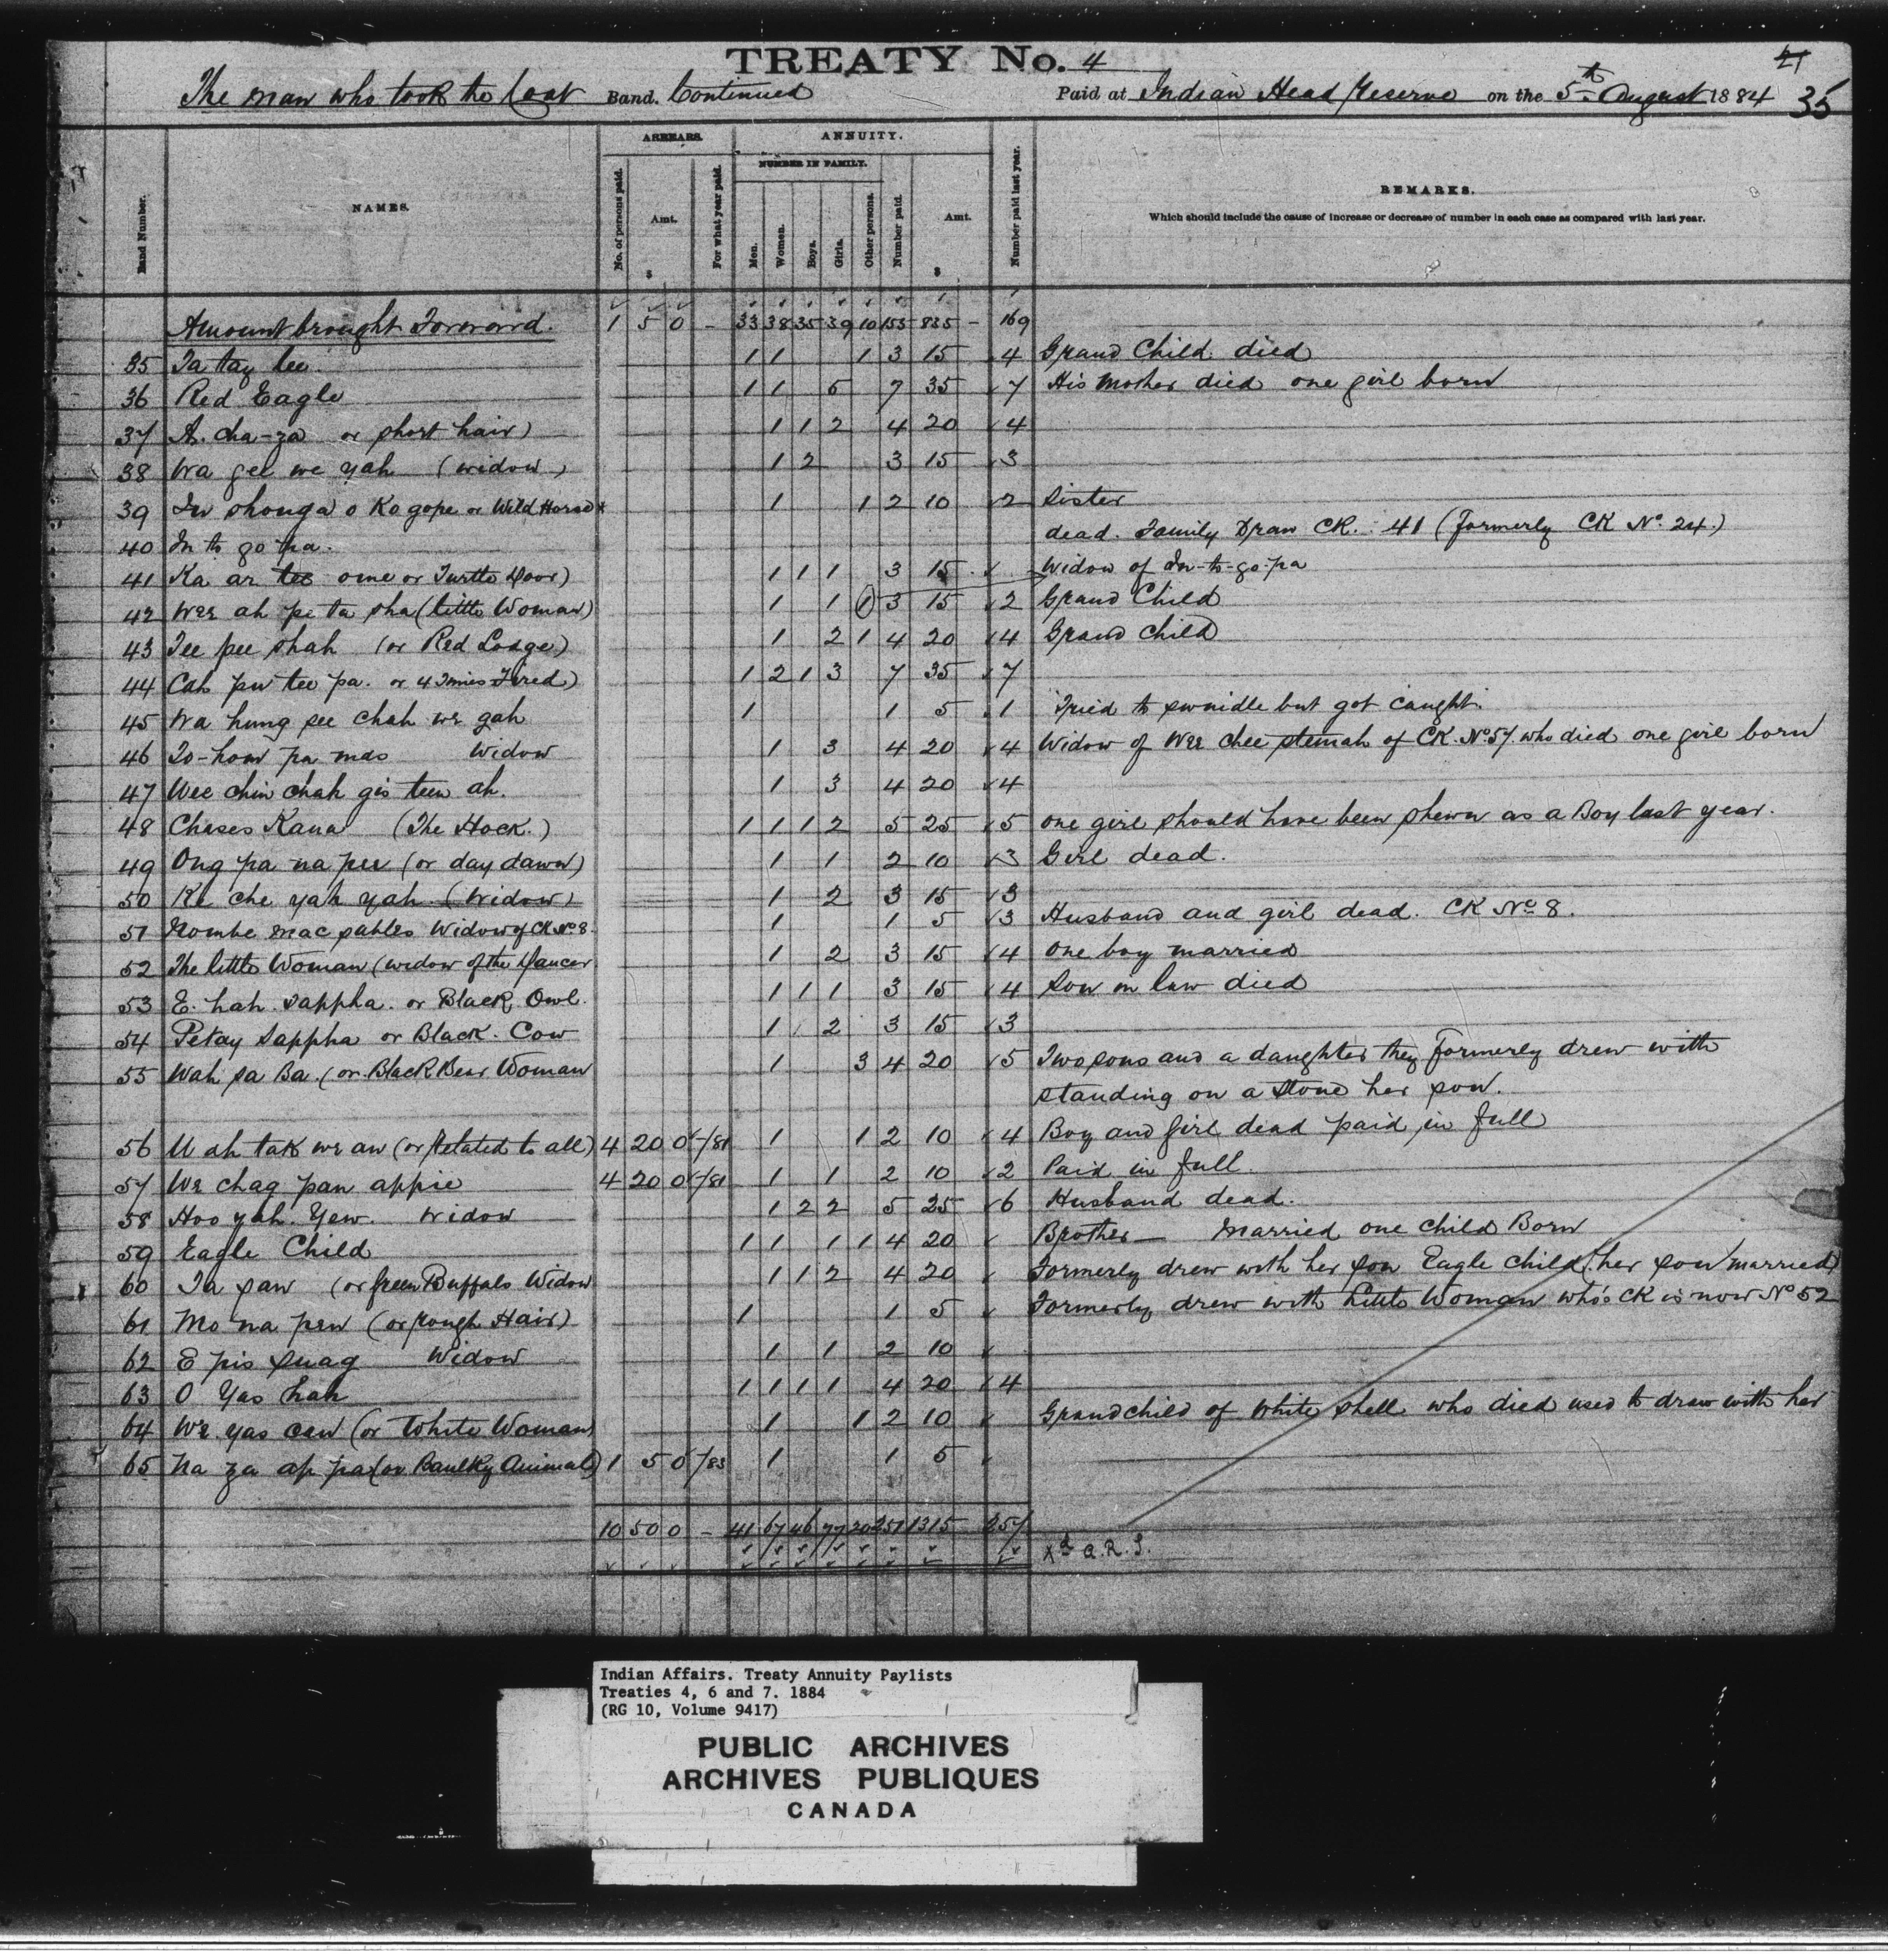 TREATY No. 4
21
The man who took the Coat Band. Continued Paid at Indian Head Reserve on the 5th August 1884 35
Band Number. NAMES. ARREARS. No. of persons paid. Amt. $ For what year paid. ANNUITY. NUMBER IN FAMILY. Men. Women. Boys. Girls. Other persons. Number paid. Amt. $ Number paid last year. REMARKS.
Which should include the cause of increase or decrease of number in each case as compared with last year.
Amount brought Forward. 1 5 0 - 33 38 35 39 10 155 835 - 169
35 Ta tay lee. 1 1 1 3 15 4 Grand Child died
36 Red Eagle 1 1 5 7 35 7 His Mother died one girl born
37 A. cha-za or short hair) 1 1 2 4 20 4
38 Wa gee we yah (widow) 1 2 3 15 3
39 In shonga o Ko gope or Wild Horse 1 1 2 10 2 Sister
40 In to go pa. dead. Family Draw CK. 41 (formerly CK No. 24.)
41 Ka ar tee ome or Turtle Door) 1 1 1 3 15 Widow of In-to-go-pa
42 Wee ah pe ta sha (little Woman) 1 1 1 3 15 2 Grand Child
43 Tee pee shah (or Red Lodge) 1 2 1 4 20 4 Grand child
44 Cah pu tee pa. or 4 Times Fired) 1 2 1 3 7 35 7
45 Wa hung see chah we gah 1 1 5 1 Tried to swindle but got caught.
46 To-how pa mas Widow 1 3 4 20 4 Widow of Wee chee stemah of CK. No 57. who died one girl born
47 Wee chin chah gis teen ah. 1 3 4 20 4
48 Chases Kana (The Hock.) 1 1 1 2 5 25 5 one girl should have been shewn as a Boy last year.
49 Ong pa na pee (or day dawn) 1 1 2 10 3 Girl dead.
50 Ke che yah yah (Widow) 1 2 3 15 3
51 Nombe mac sables Widow of CK No 8. 1 1 5 3 Husband and girl dead. CK No 8.
52 The little Woman (widow of the Dancer 1 2 3 15 4 one boy married
53 E. hah. sappha. or Black Owl. 1 1 1 3 15 4 Son in law died
54 Petay Sappha or Black. Cow 1 2 3 15 3
55 Wah sa Ba. (or Black Bear Woman 1 3 4 20 5 Two sons and a daughter they formerly drew with
standing on a Stone her son.
56 U ah tak we an (or Related to all) 4 20 0 /81 1 1 2 10 4 Boy and girl dead paid in full
57 We chag pan appie 4 20 0 /81 1 1 2 10 2 Paid in full.
58 Hoo yah. Yew. Widow 1 2 2 5 25 6 Husband dead.
59 Eagle Child 1 1 1 1 4 20 Brother — Married one child Born
60 Ta saw (or green Buffalo Widow 1 1 2 4 20 Formerly drew with her son Eagle child (her son married)
61 Mo na pew (or rough Hair) 1 1 5 Formerly drew with little Woman who's CK is now No 52
62 E pis quag Widow 1 1 2 10
63 O Yas hah 1 1 1 1 4 20 4
64 We yas cew (or White Woman) 1 1 2 10 Grandchild of White shell who died used to draw with her
65 Na za ap pa (or Baulky Animal) 1 5 0 /83 1 1 5
10 50 0 - 41 67 46 77 20 251 1315 257
Xd A.R.J.
Indian Affairs. Treaty Annuity Paylists
Treaties 4, 6 and 7. 1884
(RG 10, Volume 9417)
PUBLIC ARCHIVES
ARCHIVES PUBLIQUES
CANADA